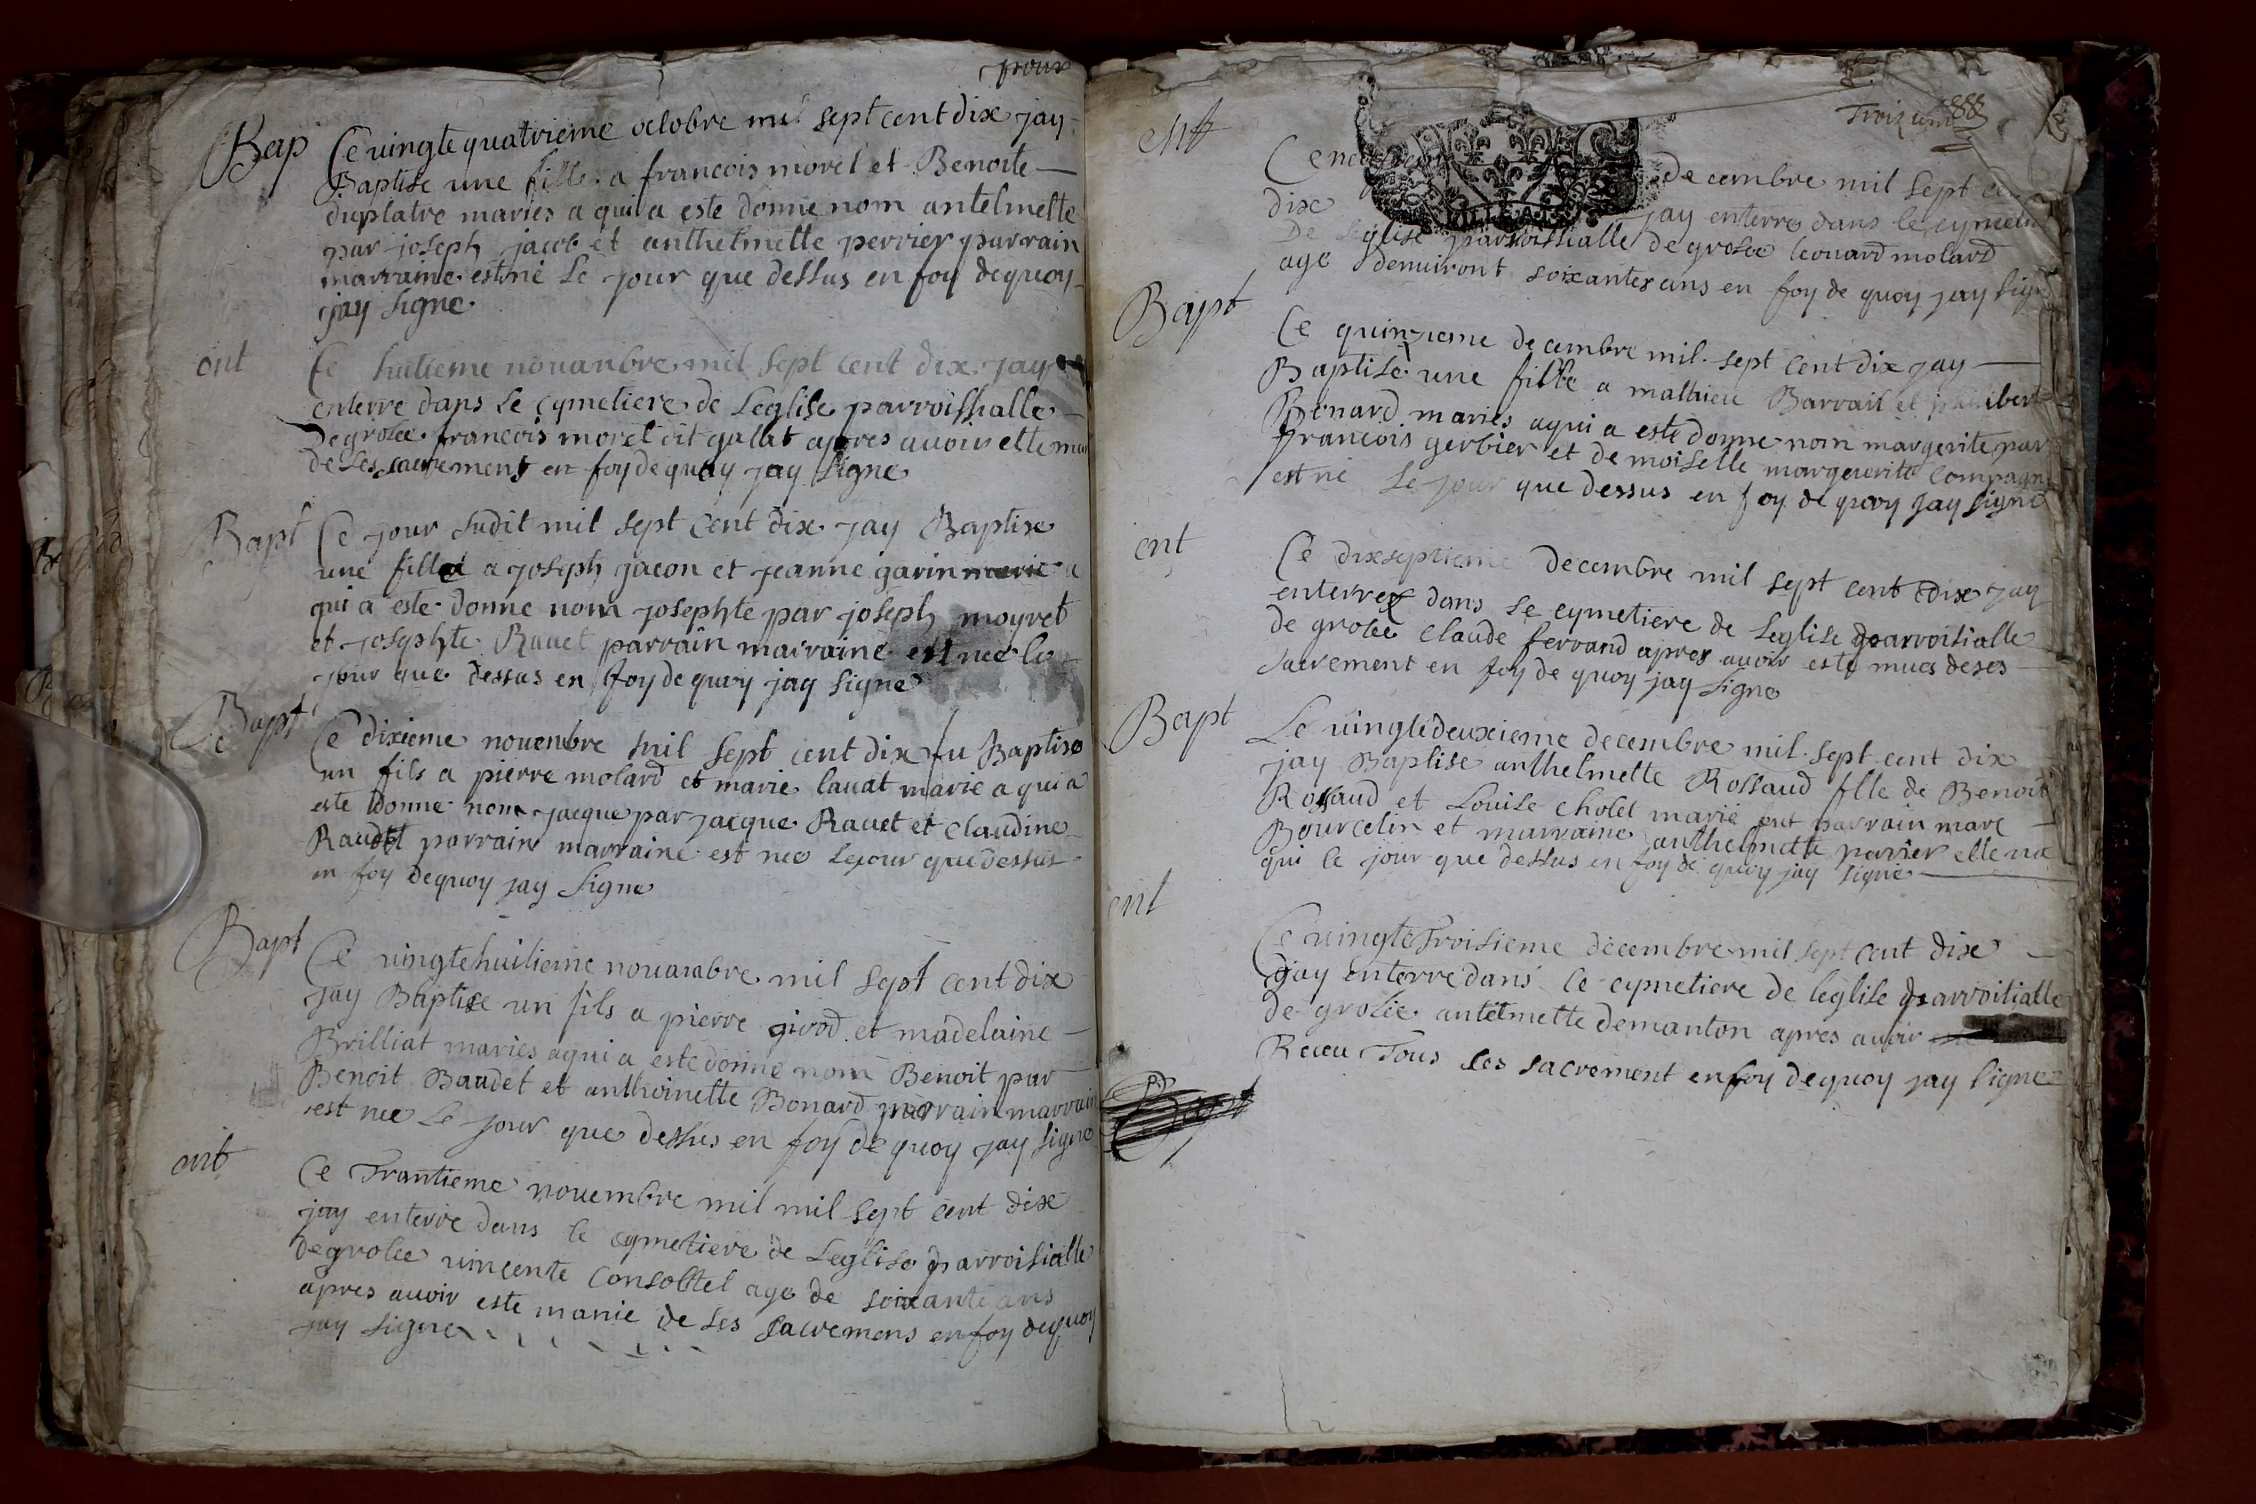 pour
Bap
Ce uingte quatrieme octobre mil sept cent dix jay
Baptise une fille a francois morel et Benoite
duplatre maries a qui a este donne nom antelmette
par joseph jacob et anthelmette perrier parrain
marraine est né le jour que dessus en foy de quoy
jay signe
ent
Ce huitieme nouanbre mil sept cent dix jay
enterre dans le cymetiere de Leglise parroissialle
de grolee francois morel dit gallat apres auoir este
de ses sacrement en foy de quoy jay signe
Bapt
Ce jour sudit mil sept cent dix jay Baptise
une fille a joseph jacon et jeanne garin marie a
qui a este donne nom josephte par joseph moyret
et josephte Rauet parrain marraine est nee le
jour que dessus en foy de quoy jay signe
Bapt
Ce dixieme nouenbre mil sept cent dix fu Baptise
un fils a pierre molard et marie lauat marie a qui a
este donne nom jacque par jacque Rauet et claudine
parrain marraine est nee le jour que dessus
en foy de quoy jay signe
Bapt
Ce uingte huitieme nouanbre mil sept cent dix
jay Baptise un fils a pierre girod et madelaine
Brilliat maries a qui a este donne nom Benoit par
Benoit Baudet et anthoinette Bonard parrain marrain
est nee le jour que dessus en foy de quoy jay signe
ent
Ce Trantieme nouembre mil mil sept cent dix
jay enterre dans le cymetiere de Leglise parroisialle
de grolee uincente age de soixante ans
apres auoir este manie de ses sacremens en foy de quoy
jay signe
ent
Trois cent 88
Ce decembre mil sept
dix jay enterre dans le
De Leglise parroissialle de grolee leonard molard
age denuiront soixantes ans en foy de quoy jay signe
Bapt
Ce quinzieme decembre mil sept cent dix jay
Baptise une fille a mathieu Barrail et
Benard maries a qui a este donne nom margerite par
francois gerbier et demoiselle marguerite compagn
est né le jour que dessus en foy de quoy jay signe
ent
Ce dixseptieme decembre mil sept cent dix jay
enterre dans le cymetiere de Leglise parroisialle
de grolee claude ferrand apres auoir este mues de ses
sacrement en foy de quoy jay signe
Bapt
Le uingtedeuxieme decembre mil sept cent dix
jay Baptise anthelmette Rossaud fille de Benoit
Rossaud et Louise cholet marié put parrain marc
Bourcelin et marraine anthelmette perrier elle na
qui le jour que dessus en foy de quoy jay signe
ent
Ce uingte Troisieme decembre mil sept cent dix
jay enterre dans le cymetiere de leglise parroitialle
de grolée antelmette demanton apres auoir
Receu Tous ses sacrement en foy de quoy jay signe